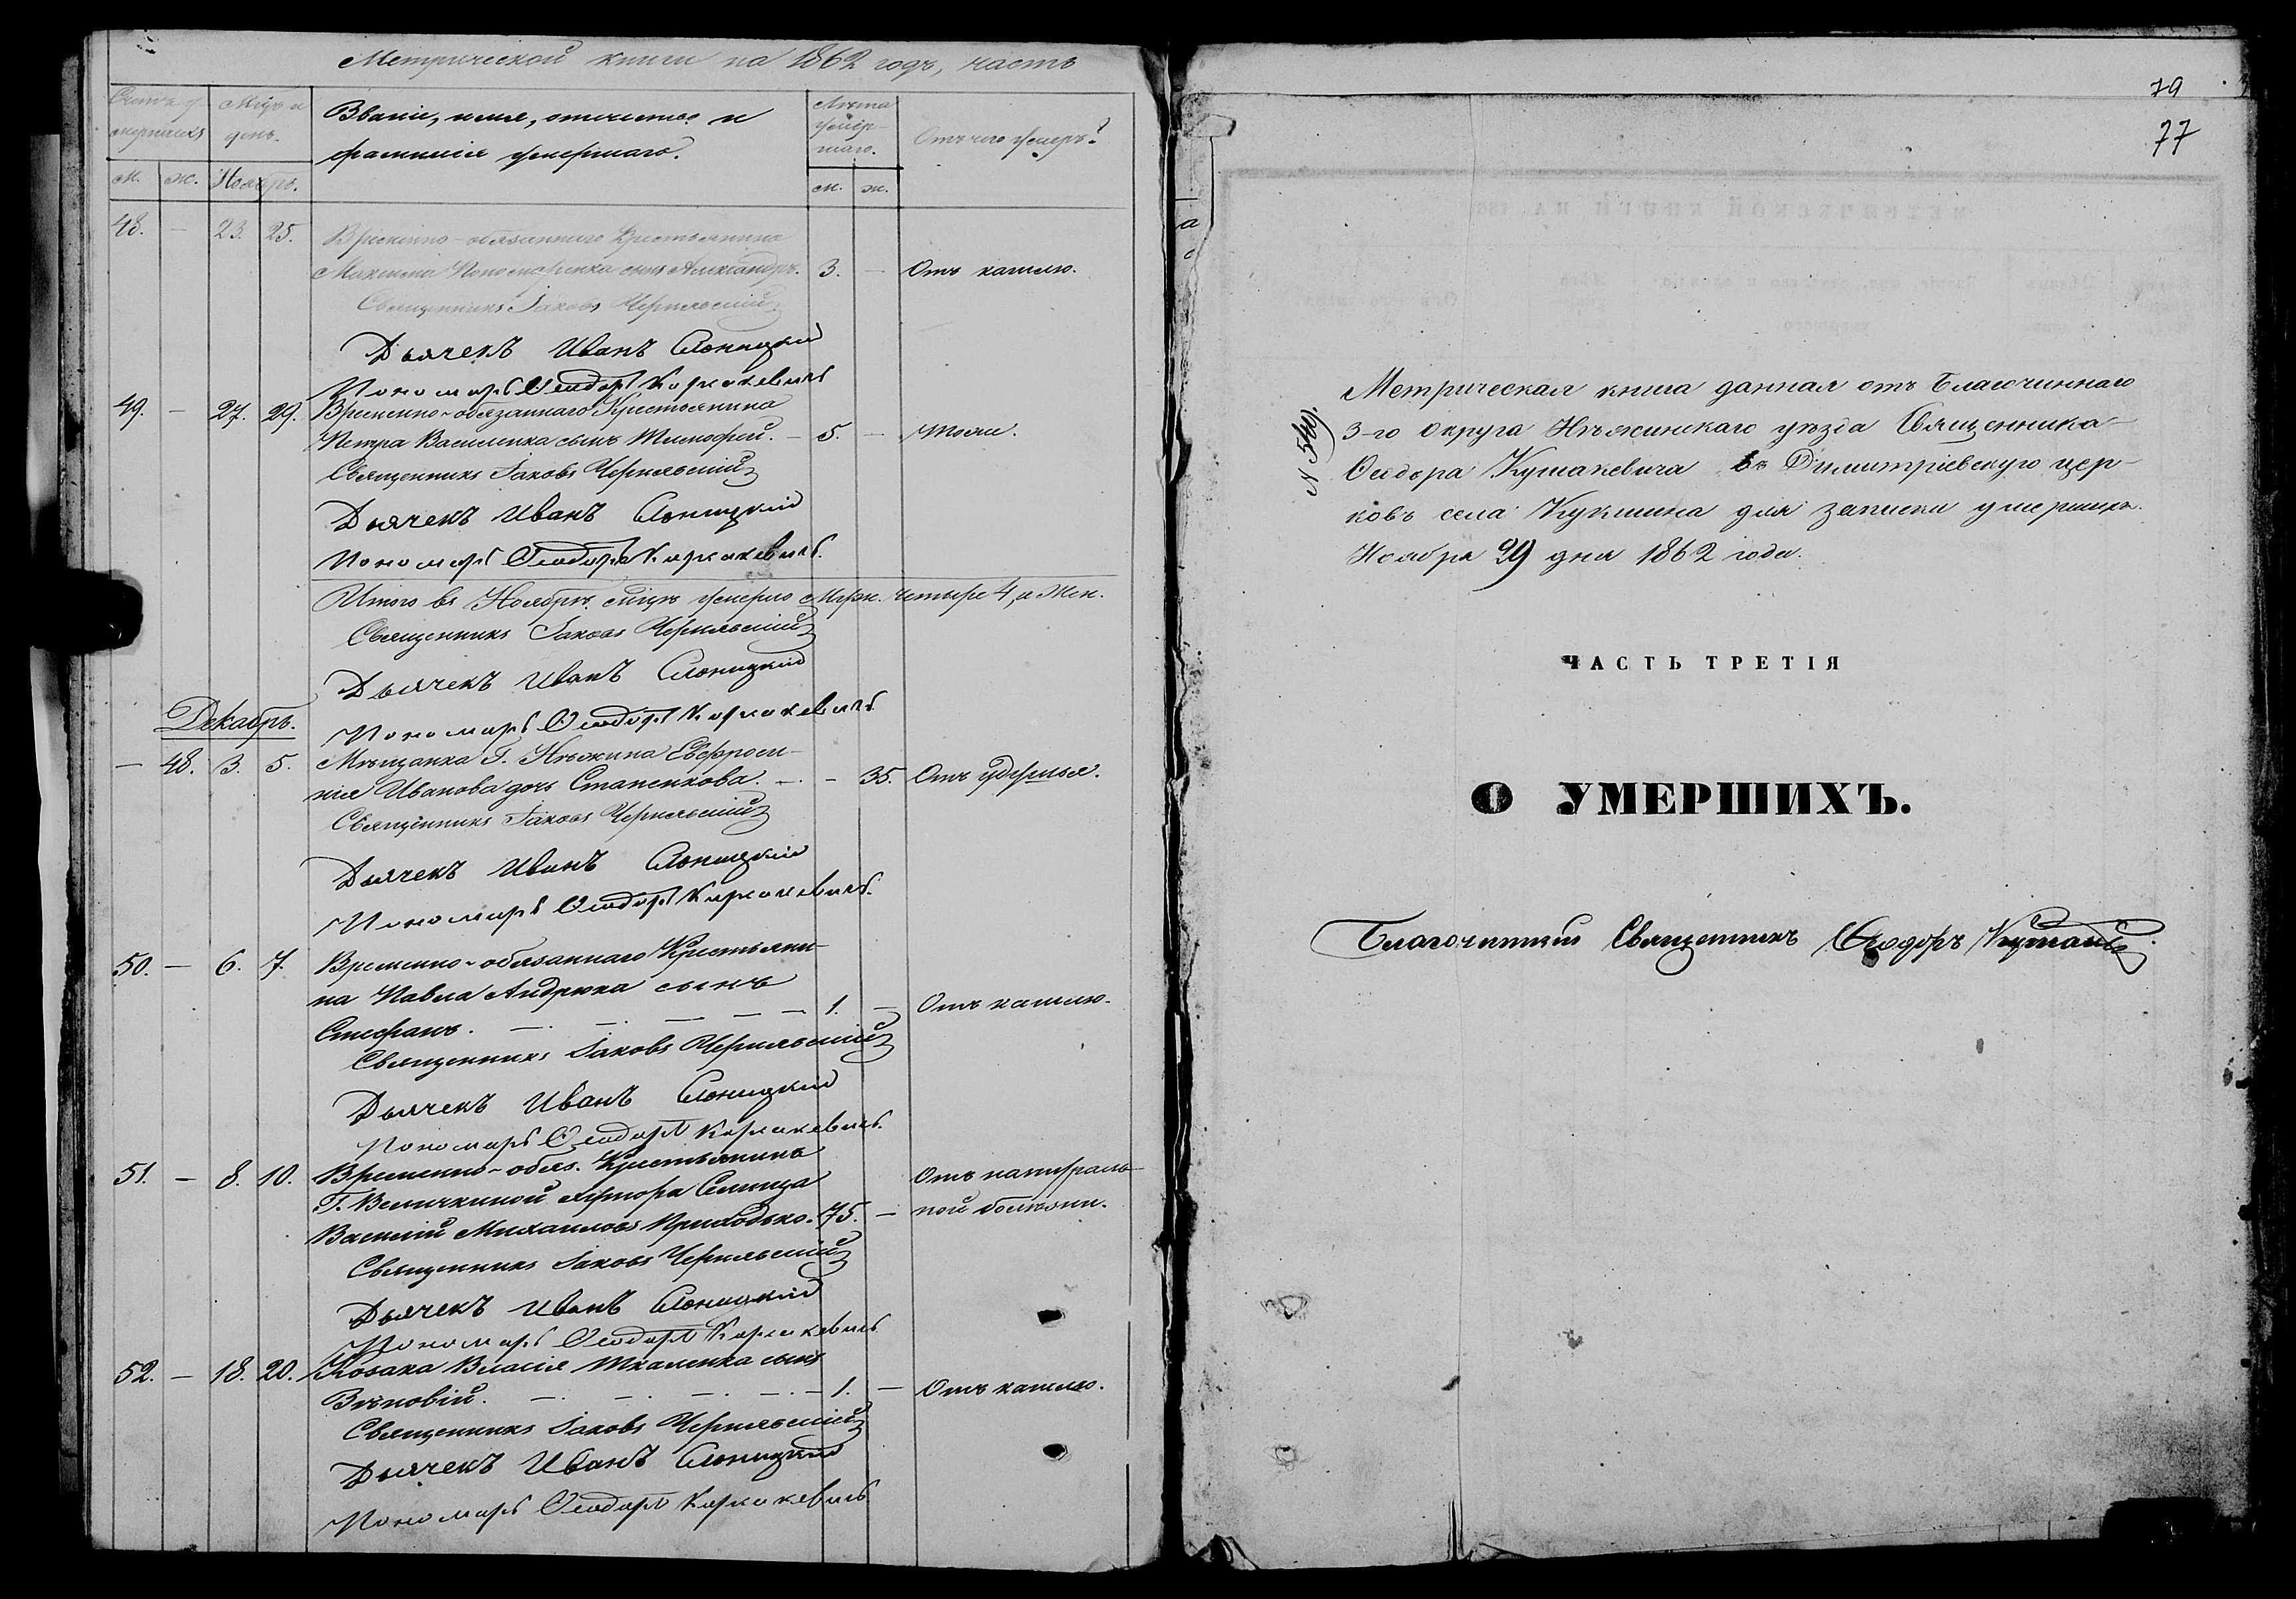 Метрической книги на 1862 годъ, часть
Счетъ у-
мершихъ
Мѣс. и
день.
Званіе, имя, отчество и
фамилія умершаго.
Лѣта
умер-
шаго.
Отъ чего умеръ?
м. ж. Ноябрь.
м. ж.
48. — 23. 25. Временно-обязаннаго Крестьянина
Максима Пономаренка сынъ Александръ. 3. — Отъ кашлю.
Священникъ Іаковъ
Дьячекъ Иванъ Слоницкій
Пономарь Ѳеодоръ
49. — 27. 29. Временно-обязаннаго Крестьянина
Петра Василенка сынъ Тимофей. — 5. — Тоже.
Священникъ Іаковъ
Дьячекъ Иванъ Слоницкій
Пономарь Ѳеодоръ
Итого въ Ноябрѣ мѣцѣ умерло муж. четыре 4, а жен.
Священникъ Іаковъ
Дьячекъ Иванъ Слоницкій
Пономарь Ѳеодоръ
Декабрь.
— 48. 3. 5. Мѣщанка Г. Нѣжина Евфроси-
нія Иванова дочь Стапенкова. — . — 35. Отъ удушья.
Священникъ Іаковъ
Дьячекъ Иванъ Слоницкій
Пономарь Ѳеодоръ
50. — 6. 7. Временно-обязаннаго Крестьяни-
на Павла Андрюка сынъ
Стефанъ. — . — . — — — 1. — Отъ кашлю.
Священникъ Іаковъ
Дьячекъ Иванъ Слоницкій
Пономарь Ѳеодоръ
51. — 8. 10. Временно-обяз. Крестьянинъ
Г. Величкиной хутора
Василій Михаиловъ Приходько. 75. —
Отъ натураль-
ной болѣзни.
Священникъ Іаковъ
Дьячекъ Иванъ Слоницкій
Пономарь Ѳеодоръ
52. — 18. 20. Козака Власія Ткаленка сынъ
Зѣновій. — . — . — . — . — 1. — Отъ кашлю.
Священникъ Іаковъ
Дьячекъ Иванъ Слоницкій
Пономарь Ѳеодоръ
79
77
Метрическая книга данная отъ Благочиннаго
3-го Округа Нѣжинскаго уѣзда Священника
Ѳеодора Кушакевича въ Димитріевскую цер-
ковь села Кукшина для записки умершихъ.
Ноября 29 дня 1862 года.
N 569.
ЧАСТЬ ТРЕТІЯ
О УМЕРШИХЪ.
Благочинный Священникъ Ѳеодоръ